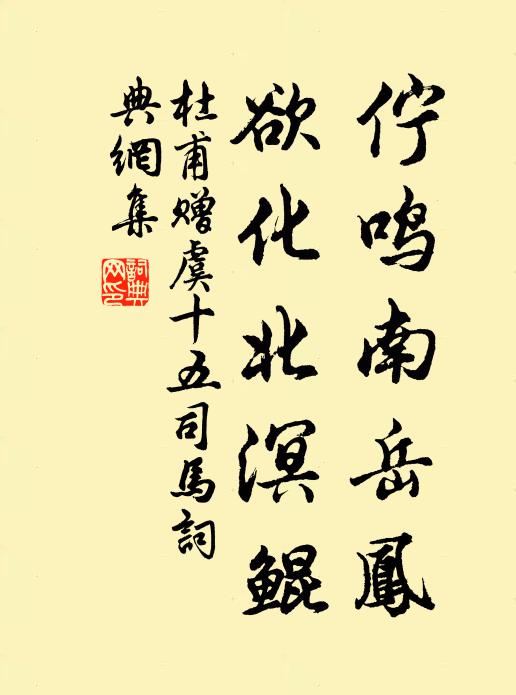 佇鳴南岳鳳
欲化北溟鯤
杜甫赠虞十五司馬詞
典網集
詞典
网印